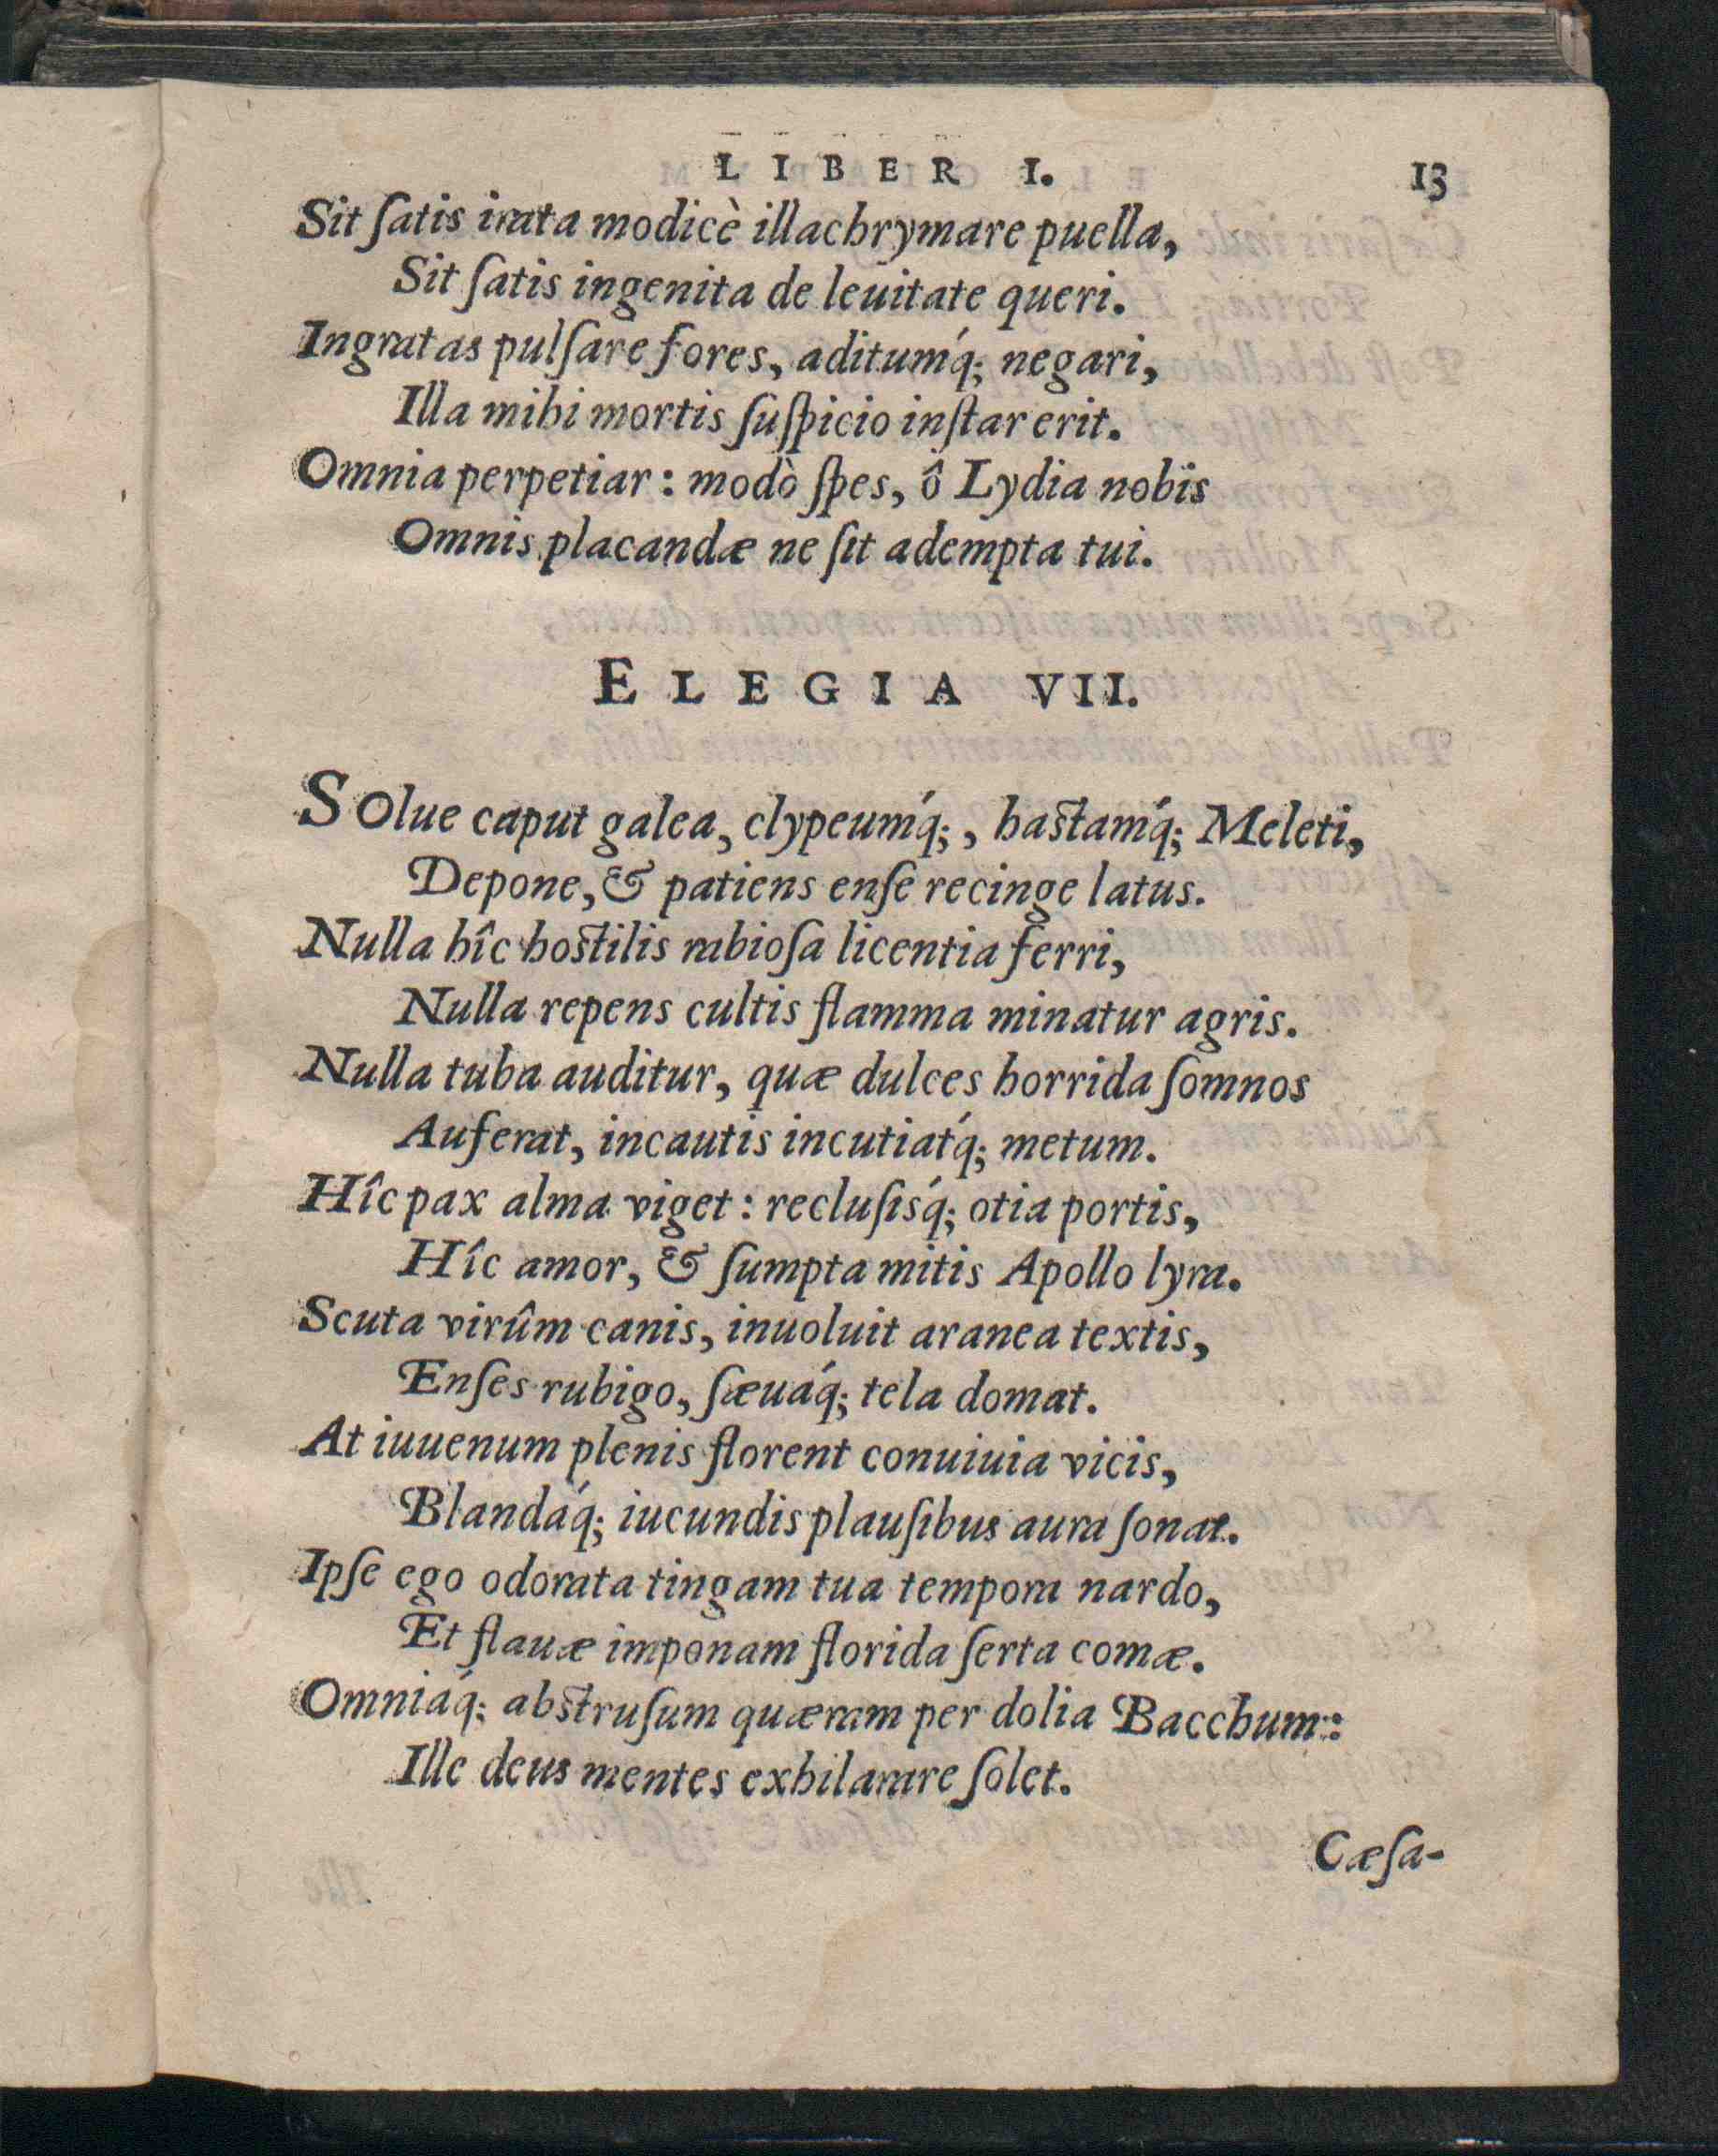 LIBER I. 13
Sit ſatis irata modicè illachrymare puella,
Sit ſatis ingenita de leuitate queri.
Ingratas pulſare fores, aditumq́; negari,
Illa mihi mortis ſuſpicio inſtar erit.
Omnia perpetiar: modò ſpes, ô Lydia nobis
Omnis placandæ ne ſit adempta tui.
ELEGIA VII.
SOlue caput galea, clypeumq́;, hastamq́; Meleti,
Depone, & patiens enſe recinge latus.
Nulla hîc hostilis rabioſa licentia ferri,
Nulla repens cultis flamma minatur agris.
Nulla tuba auditur, quæ dulces horrida ſomnos
Auferat, incautis incutiatq́; metum.
Hîc pax alma viget: recluſisq́; otia portis,
Hîc amor, & ſumpta mitis Apollo lyra.
Scuta virûm canis, inuoluit aranea textis,
Enſes rubigo, ſæuaq́; tela domat.
At iuuenum plenis florent conuiuia vicis,
Blandaq́; iucundis plauſibus aura ſonat.
Ipſe ego odorata tingam tua tempora nardo,
Et flauæ imponam florida ſerta comæ.
Omniaq́; abstruſum quæram per dolia Bacchum:
Ille deus mentes exhilarare ſolet.
Cæſa-